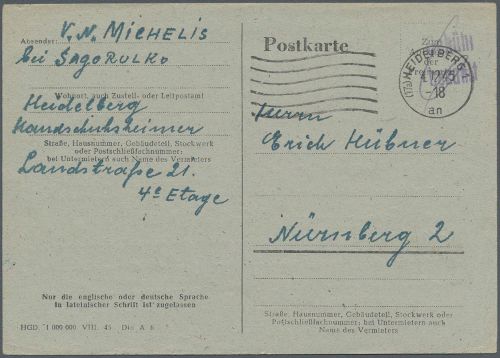 Absender: V. N. MicHELIS
bei SAGORULKO
Wohnort, auch Zustell- oder Leitpostamt
Heidelberg
Handschuhsheimer
Straße, Hausnummer, Gebäudeteil, Stockwerk
oder Postschließfachnummer;
bei Untermietern auch Name des Vermieters
Landstraße 21.
4e Etage
Nur die englische oder deutsche Sprache
in lateinischer Schrift ist zugelassen
HGD 1 000 000 VIII. 45 Din A 6
Postkarte
(17a) HEIDELBERG
-18
an
Herrn
Erich Hübner
Nürnberg 2
Straße, Hausnummer, Gebäudeteil, Stockwerk oder
Postschließfachnummer; bei Untermietern auch
Name des Vermieters